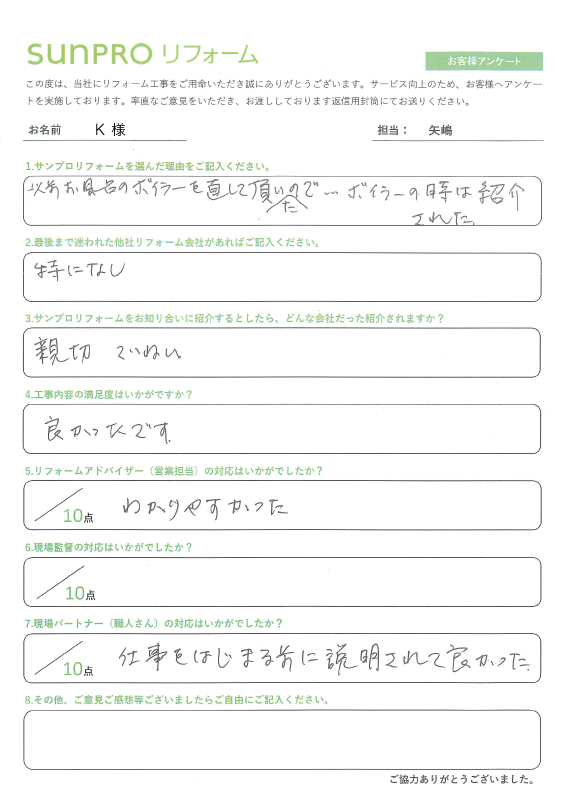 SUNPRO リフォーム
お客様アンケート
この度は、当社にリフォーム工事をご用命いただき誠にありがとうございます。サービス向上のため、お客様へアンケー
トを実施しております。率直なご意見をいただき、お渡ししております返信用封筒にてお送りください。
お名前 K 様 担当： 矢嶋
1.サンプロリフォームを選んだ理由をご記入ください。
以前お風呂のボイラーを直して頂いたので… ボイラーの時は紹介
された
2.最後まで迷われた他社リフォーム会社があればご記入ください。
特になし
3.サンプロリフォームをお知り合いに紹介するとしたら、どんな会社だった紹介されますか？
親切 ていねい
4.工事内容の満足度はいかがですか？
良かったです
5.リフォームアドバイザー（営業担当）の対応はいかがでしたか？
／10点 わかりやすかった
6.現場監督の対応はいかがでしたか？
／10点
7.現場パートナー（職人さん）の対応はいかがでしたか？
／10点 仕事をはじまる前に説明されて良かった
8.その他、ご意見ご感想等ございましたらご自由にご記入ください。
ご協力ありがとうございました。